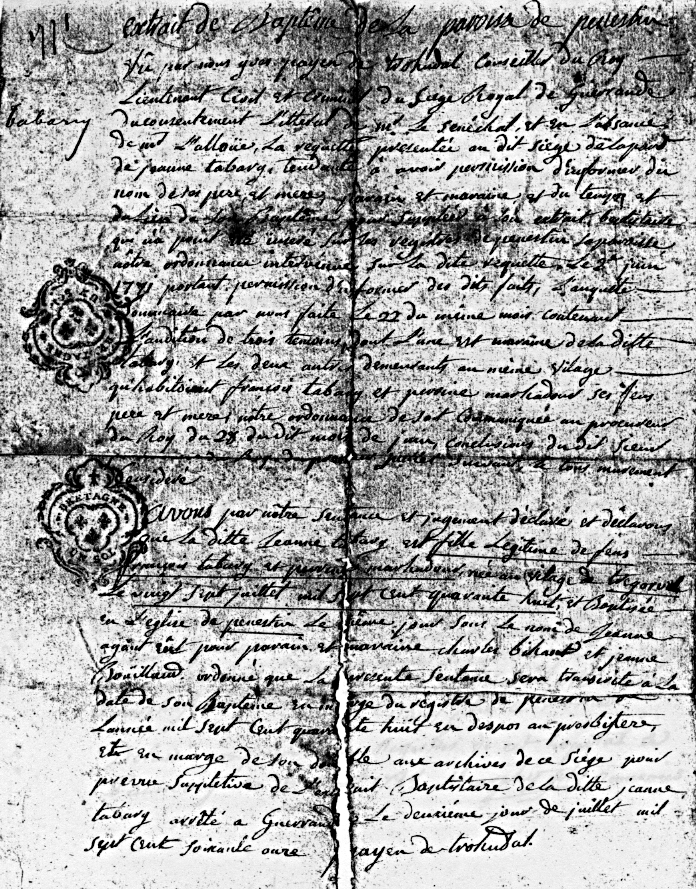 extrait de Baptême de la paroisse de penestin
Vu par nous yves gayen de trohudal Conseiller du Roy
Lieutenant Civil et Criminel du Siege Royal de Guerande
tabary
du consentement Litteral de mr Le Senéchal, et en L'absence
de mr L'alloüé, La requette presentée au dit siege de la part
de jeanne tabary, tendante à avoir permission d'informer du
nom de ses pere et mere, parain et maraine, et du temps et
du Lieu de son Baptême pour Suppléer à son extrait baptistaire
qui n'a point été inseré sur les registres de penestin sa paroisse
notre ordonnance intervenue sur La dite requette Le 2e juin
1771 portant permission d'informer des dits faits, L'enquette
Sommaire par nous faite Le 22 du même mois contenant
L'audition de trois temoins dont L'une est maraine de la ditte
tabary, et Les deux autres demeurants au même vilage
qu'habitoient françois tabary et perrine marhadour ses feus
pere et mere, notre ordonnance de soit Communiquée au procureur
du Roy du 28 du dit mois de juin, Conclusions du dit Sieur
du Roy du jour Suivant, Le tout murement
Consideré
Avons par notre Sentence et jugement déclaré et déclarons
que La ditte Jeanne tabary est fille Légitime de feus
françois tabary et perrine marhadour, née au vilage de tregorvel
Le vingt Sept juillet mil sept Cent quarante huit, et Baptisée
en L'eglise de penestin Le même jour sous Le nom de Jeanne
ayant eut pour parain et maraine charles bihant et jeanne
Boüilland, ordonné que La presente Sentence sera transcrite à La
date de son Baptême en marge du registre de penestin de
L'année mil sept Cent quarante huit en depos au presbitere
Et en marge de son double aux archives de ce Siége pour
preuve Suppletive de L'extrait Baptistaire de la ditte jeanne
tabary arrêté a Guerrande Le deuxiéme jour de juillet mil
sept Cent soixante onze gayen de trohudal.
BRETAGNE